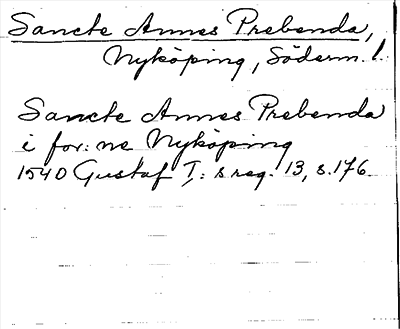 Sancte Annes Prebenda,
Nyköping, Söderm. l.
Sancte Annes Prebenda
i for: ne Nyköping
1540 Gustaf I: s reg. 13, s. 176